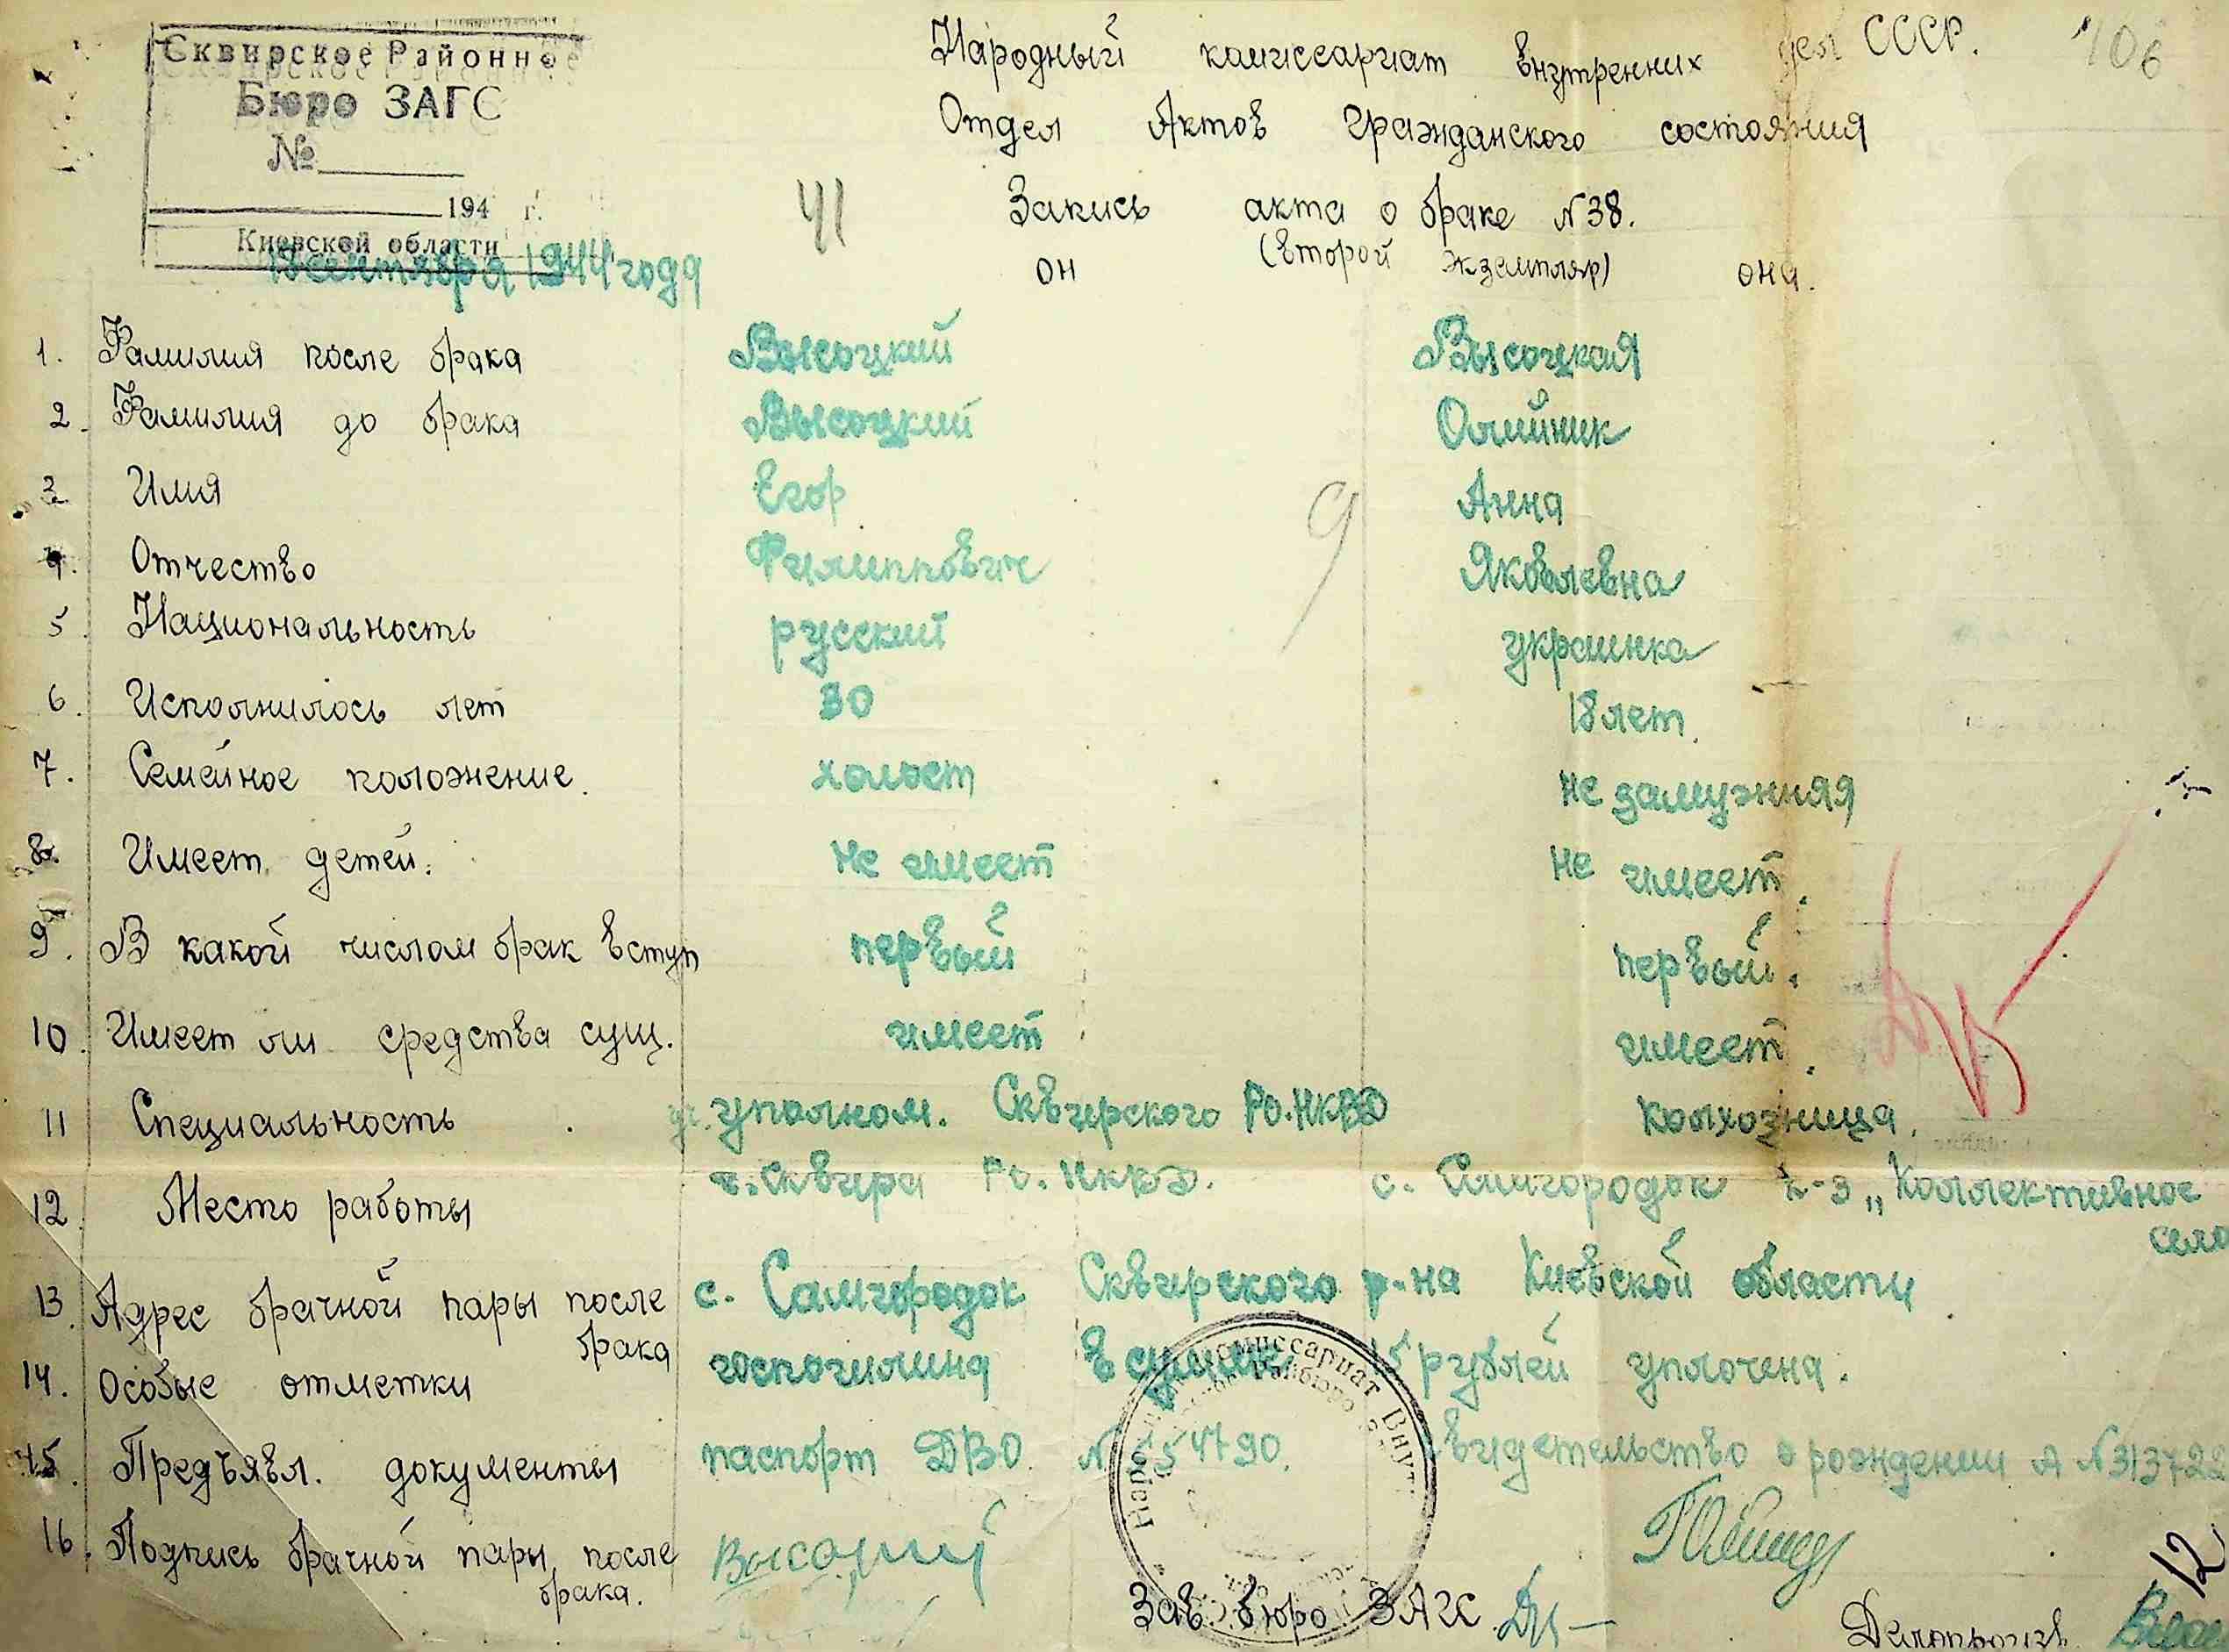 Сквирское Районное
Бюро ЗАГС
№
194 г.
Киевской области
сентября 1944 года
Народный комиссариат внутренних дел СССР.
106
Отдел Актов гражданского состояния
41
Запись акта о браке №38.
(второй экземпляр)
он она.
1. Фамилия после брака Высоцкий Высоцкая
2. Фамилия до брака Высоцкий Олийник
3. Имя Егор Анна
9
4. Отчество Филиппович Яковлевна
5. Национальность русский украинка
6. Исполнилось лет 30 18 лет.
7. Семейное положение. холост не замужняя
8. Имеет детей. не имеет не имеет.
9. В какой числом брак вступ первый первый.
10. Имеет ли средства сущ. имеет имеет.
11 Специальность уч. уполном. Сквирского Ро.НКВД колхозница.
12 Место работы г. Сквира Ро. НКВД. с. Самгородок к-з „Коллективное
село
13. Адрес брачной пары после с. Самгородок Сквирского р-на Киевской области
брака
14. Особые отметки госпошлина в сумме 15 рублей уплочена.
15. Предъявл. документы паспорт ДВО № 54790. свидетельство о рождении А №313722
16. Подпись брачной пары после Высоцкий
брака.
Народный Комиссариат Внут
Зав бюро ЗАГС
Делопроизв
12